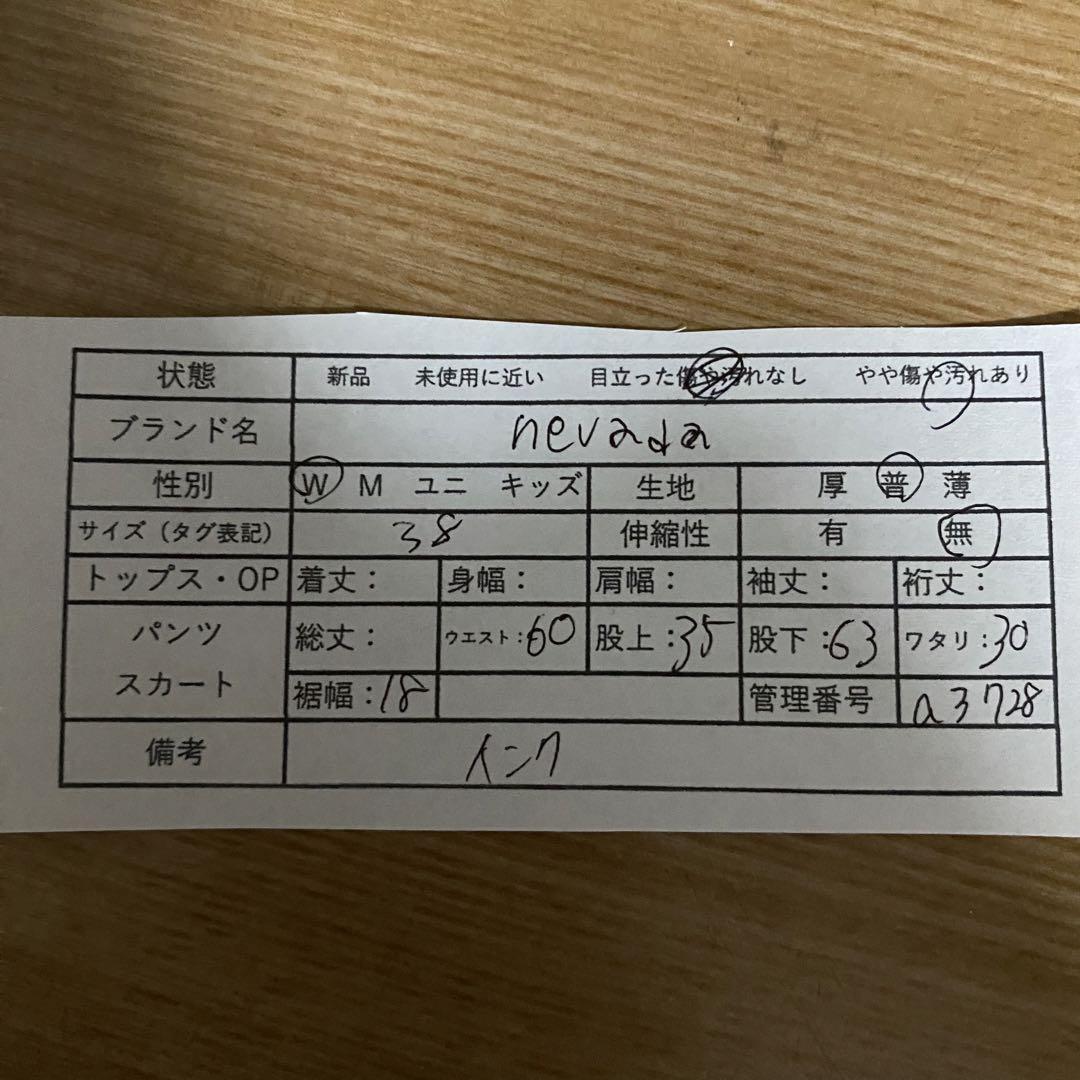 状態 新品 未使用に近い 目立った傷や汚れなし やや傷や汚れあり
ブランド名 nevada
性別 W M ユニ キッズ 生地 厚 普 薄
サイズ（タグ表記） 38 伸縮性 有 無
トップス・OP 着丈： 身幅： 肩幅： 袖丈： 裄丈：
パンツ スカート 総丈： ウエスト：60 股上：35 股下：63 ワタリ：30
裾幅：18 管理番号 a3728
備考 インク